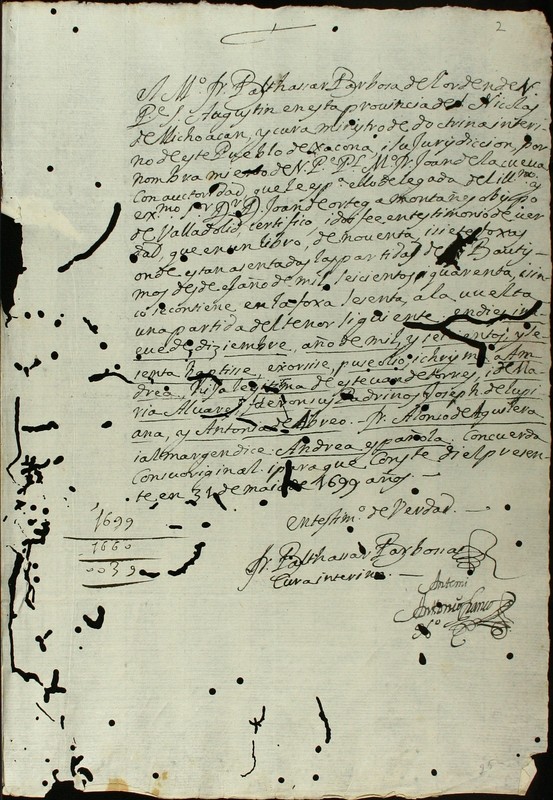 2
El Mº. Fr. Balthassar Barbosa del orden de N.
Pe. S. Augustin en esta provincia de S. Nicolas
de Michoacan, y cura ministro de doctrina interi
no deste Pueblo de Xacona, i su Jurydiccion, por
nombramiento de N. Pe. Pl. M. Fr. Joan de la cueva
Con auctoridad, que le es dello delegada del illmo. y
exmo. sor. Dr. D. Joan de ortega Montañes obispo
de Valladolid, certifico, i doi fee en testimonio de ver
dad, que en un libro, de noventa, i siete foxas
onde estan asentadas las partidas de Bautiy
mos desde el año de mil, seicientos, y quarenta, i sin
co se contiene, en la foxa sesenta, a la vuelta
una partida del tenor siguiente. en dies, i
eve de diziembre, año de mil, y seicientos, y se
senta baptise, exorsise, puse olio, i chrisma a An
drea, hija legitima de estevan de torres, i de Ma
ria Alvares, fueron sus Padrinos Joseph de
ana, y Antonia de Abreo. Fr. Alonso de Aguilera
i al margen dice: Andrea española. Concuerda
Con su original. i para que Conste di el presen
te en 31 de maio de 1699 años.
en testimo. de Verdad.
1699
1660
0039
Fr. Balthassar Barbosa
Cura interino
Antemi
Antonio